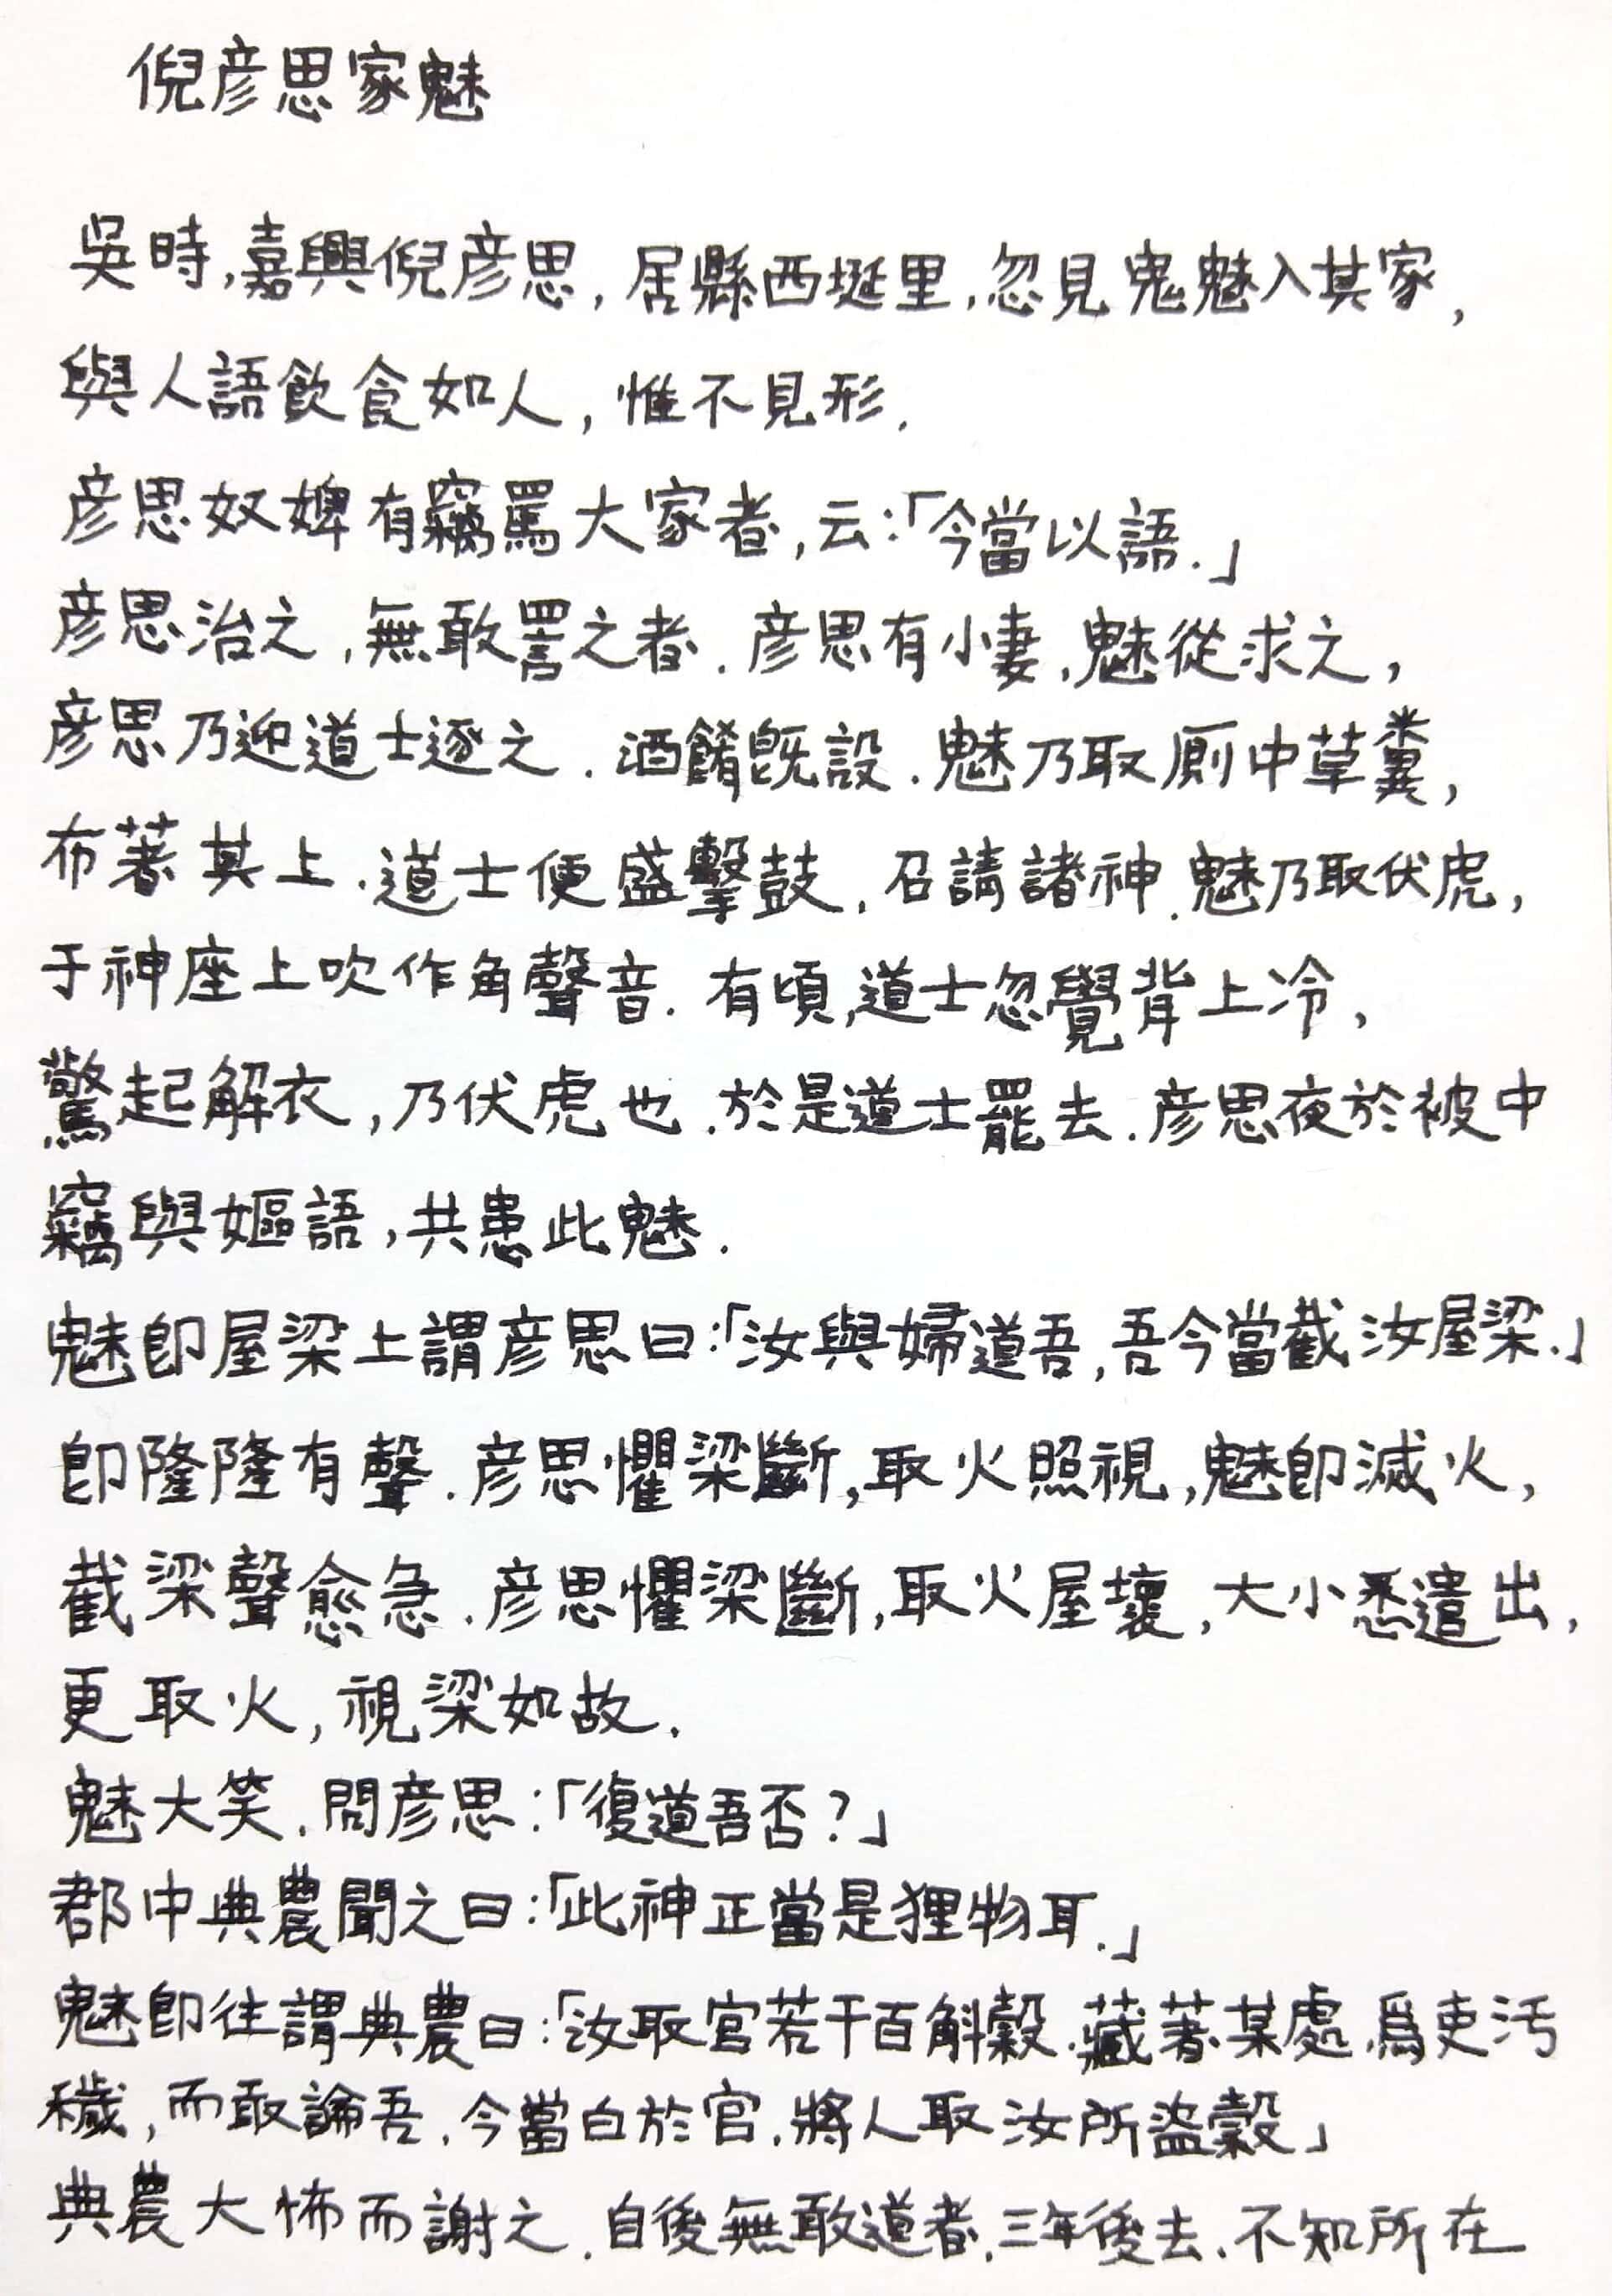 倪彦思家魅
吳時,嘉興倪彦思,居縣西埏里,忽見鬼魅入其家,
與人語飲食如人,惟不見形.
彦思奴婢有竊罵大家者,云:「今當以語.」
彦思治之,無敢詈之者.彦思有小妻,魅從求之,
彦思乃迎道士逐之.酒餚旣設.魅乃取厠中草糞,
布著其上.道士便盛擊鼓,召請諸神.魅乃取伏虎,
于神座上吹作角聲音.有頃,道士忽覺背上冷,
驚起解衣,乃伏虎也.於是道士罷去.彦思夜於被中
竊與嫗語,共患此魅.
魅卽屋梁上謂彦思曰:「汝與婦道吾,吾今當截汝屋梁.」
卽隆隆有聲.彦思懼梁斷,取火照視,魅卽滅火,
截梁聲愈急.彦思懼梁斷,取火屋壞,大小悉遣出,
更取火,視梁如故.
魅大笑,問彦思:「復道吾否?」
郡中典農聞之曰:「此神正當是狸物耳.」
魅卽往謂典農曰:「汝取官若干百斛穀.藏著某處,爲吏汚
穢,而敢論吾,今當白於官,將人取汝所盜穀」
典農大怖而謝之.自後無敢道者,三年後去.不知所在